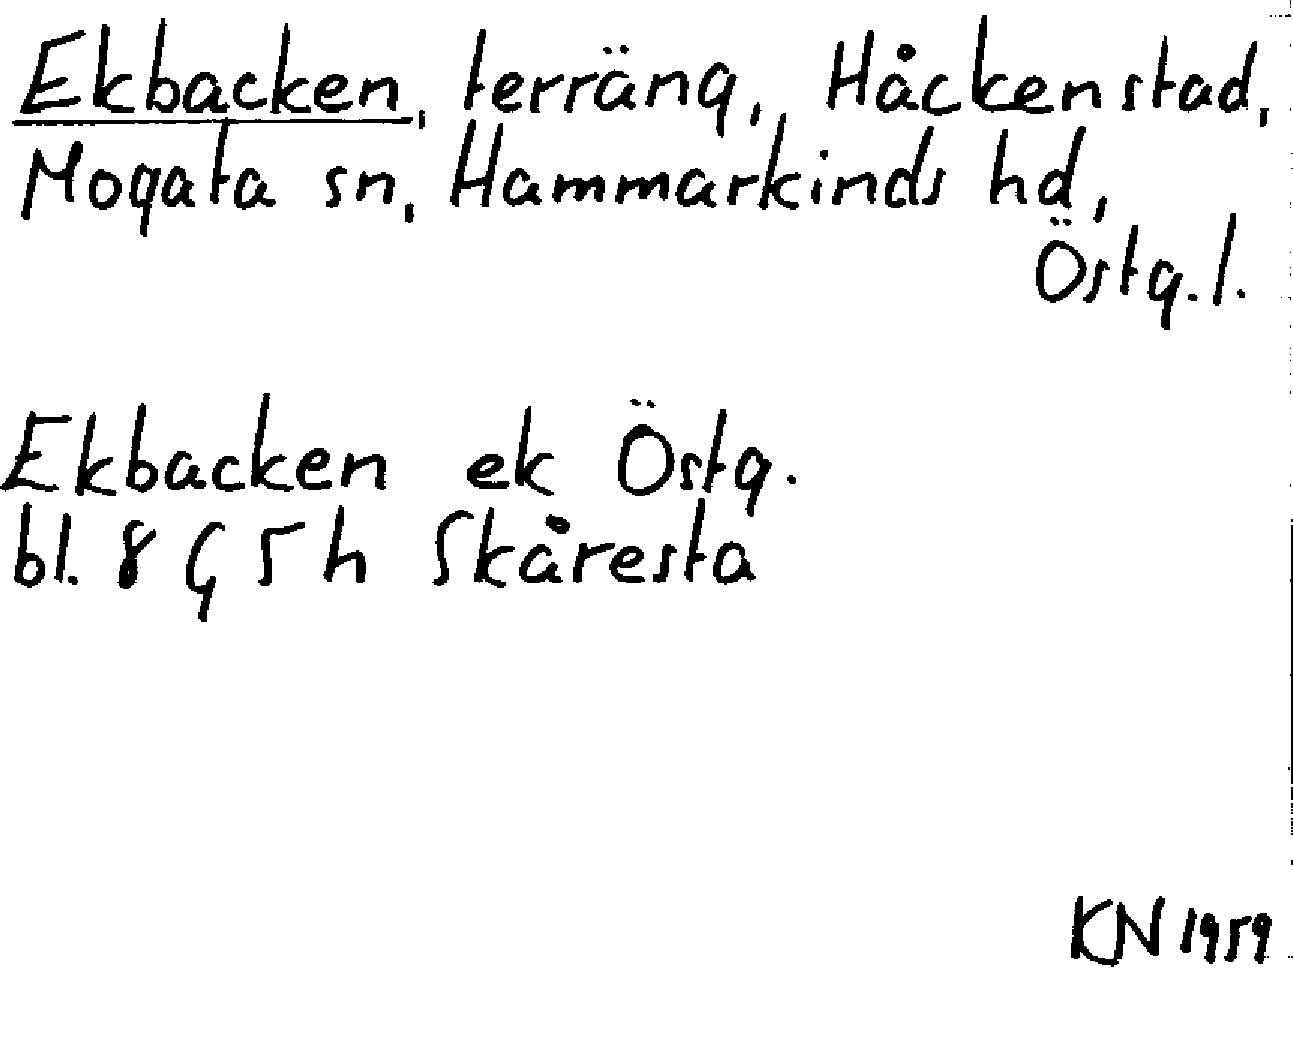 Ekbacken, terräng, Håckenstad,
Mogata sn, Hammarkinds hd,
Östg.l.
Ekbacken ek Östg.
bl. 8 G 5 h Skåresta
KN 1959